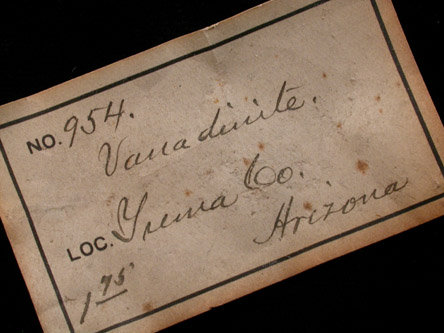 NO. 954.
Vanadinite.
LOC. Yuma Co.
Arizona
1 75